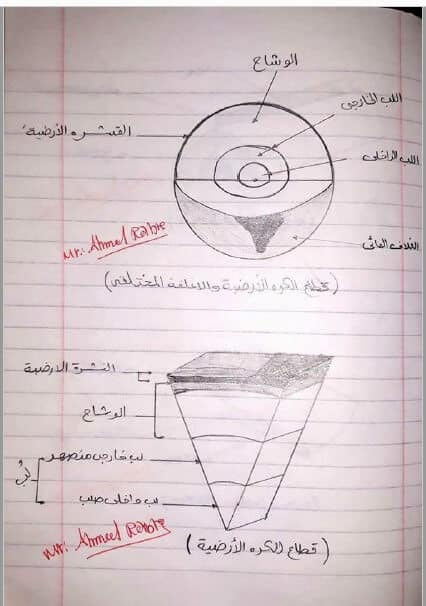 الوشاح
اللب الخارجى
القشره الأرضية
اللب الداخلى
الغلاف المائى
Mr: Ahmed Rabie
(قطاع الكره الأرضية والاغلفة المختلفى)
القشرة الارضية
الوشاح
لب خارجى منصهر
لُب
لب داخلى صلب
Mr: Ahmed Rabie
(قطاع الكره الأرضية)